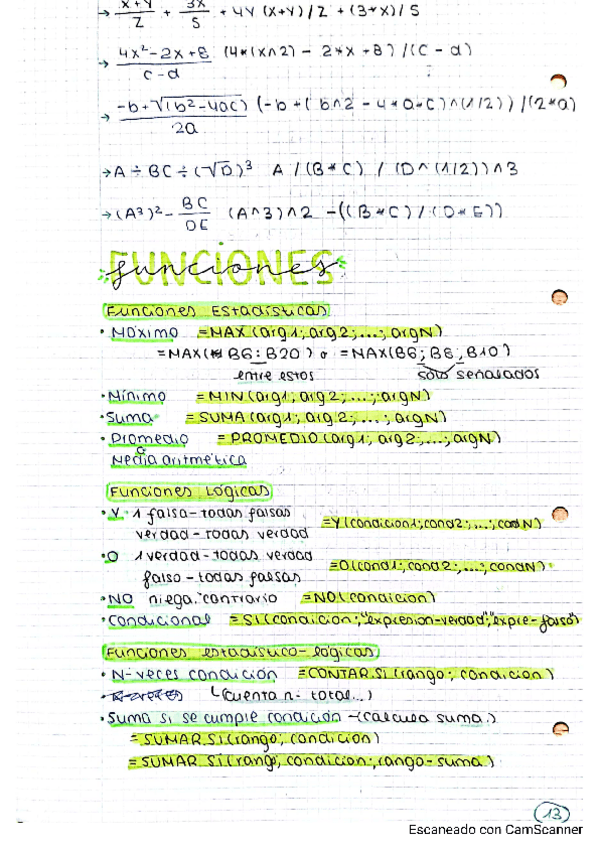 → x+y/z + 3x/5 + 4Y (x+Y)/Z + (3*x)/5
→ 4x²-2x+8/c-d (4*(x^2) - 2*x +8) /(c - d)
→ -b+√(b²-4ac)/2a (-b +( b^2 - 4*a*c)^(1/2)) /(2*a)
→ A ÷ BC ÷ (√D)³ A / (B*C) / (D^(1/2))^3
→ (A³)² - BC/DE (A^3)^2 -((B*C) / (D*E))
FUNCIONES
funciones
Funciones Estadísticas
• Máximo =MAX (arg1; arg2; ...; argN)
=MAX( B6:B20 ) o =MAX(B6; B8; B10)
entre estos sólo señalados
• Mínimo =MIN (arg1; arg2; ...; argN)
• Suma =SUMA (arg1; arg2; ...; argN)
• Promedio =PROMEDIO (arg1; arg2; ...; argN)
o
Media aritmética
Funciones Lógicas
• Y 1 falsa-todas falsas =Y(condicion1; cond2; ...; condN)
verdad-todas verdad
• O 1 verdad-todas verdad =O(cond1; cond2; ...; condN)
falso-todas falsas
• NO niega. contrario =NO( condicion)
• Condicional =SI(condicion;"expresion-verdad";"expre-falso")
Funciones estadístico-lógicas
• N-veces condición =CONTAR.SI (rango; condicion)
• N-veces (cuenta n- total...)
• Suma si se cumple condición -(calcula suma.)
=SUMAR.SI(rango; condicion)
=SUMAR.SI(rango; condicion; rango-suma)
13
Escaneado con CamScanner